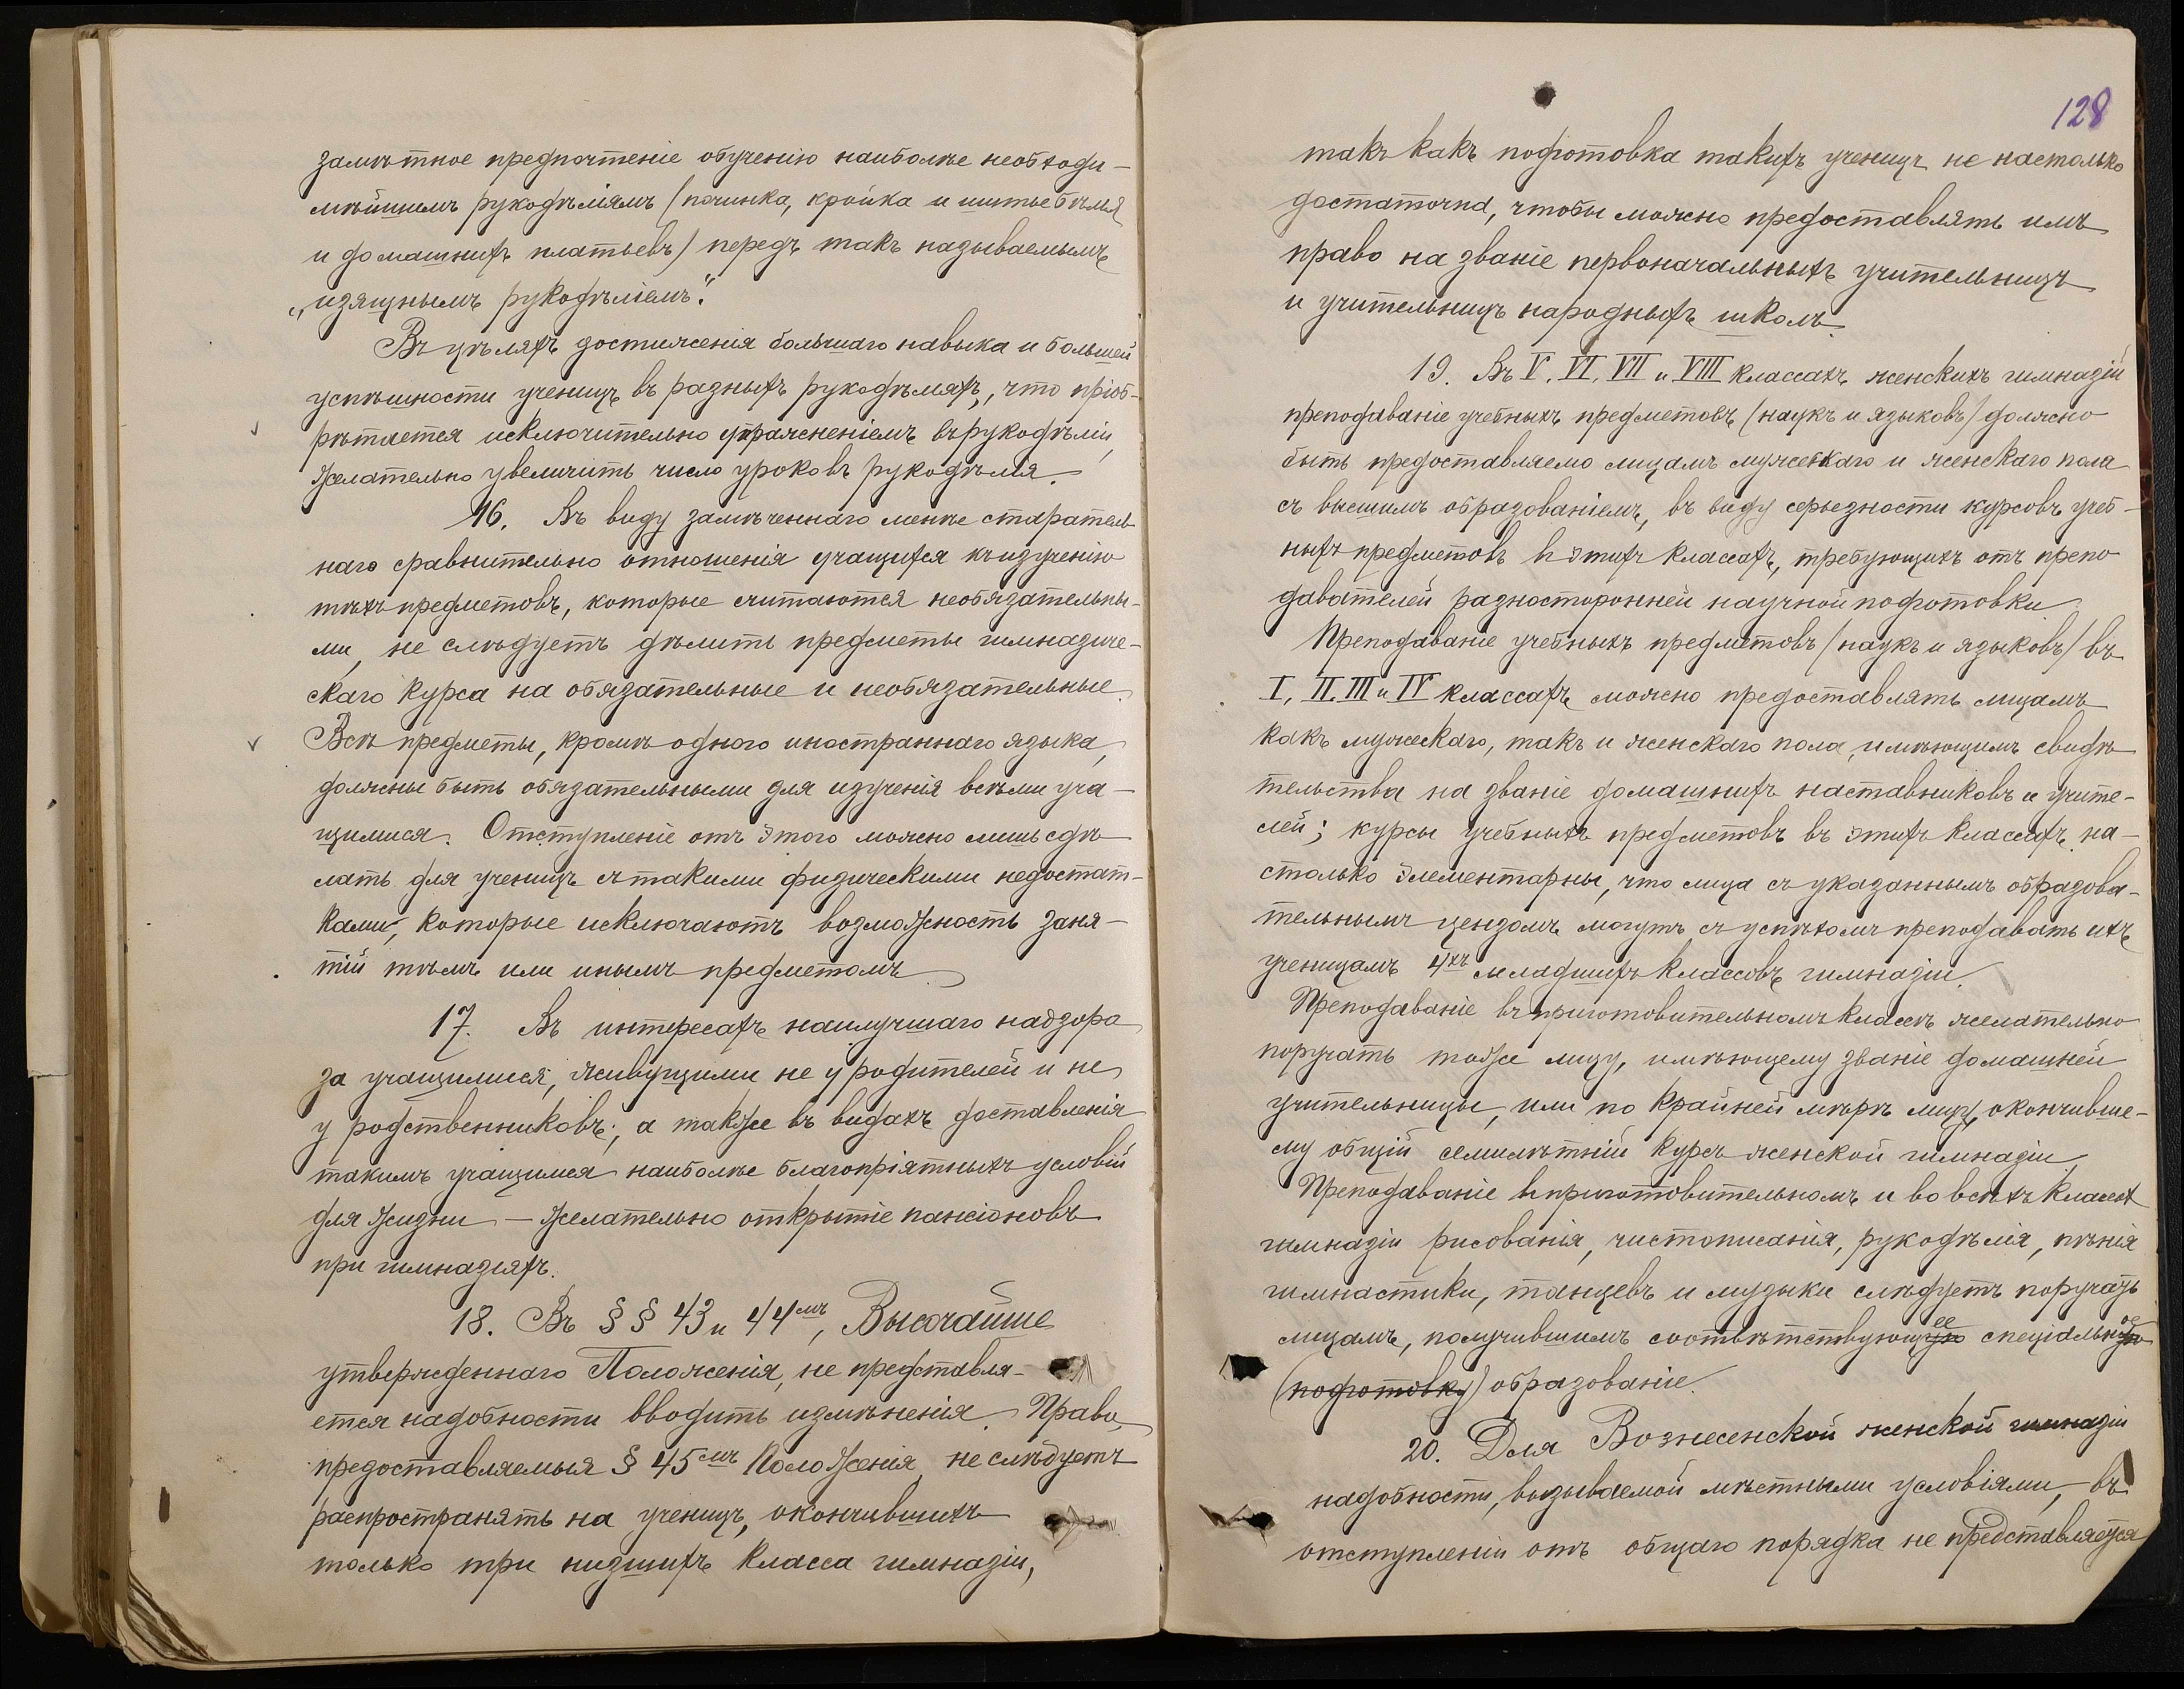 замѣтное предпочтеніе обученію наиболѣе необходи-
мѣйшимъ рукодѣліямъ (починка, кройка и шитье бѣлья
и домашнихъ платьевъ) передъ такъ называемымъ
„изящнымъ рукодѣліемъ“.
Въ цѣляхъ достиженія большаго навыка и большей
успѣшности ученицъ въ разныхъ рукодѣліяхъ, что пріоб-
рѣтается исключительно упражненіемъ въ рукодѣліи,
желательно увеличить число уроковъ рукодѣлія.
16. Въ виду замѣченнаго менѣе старатель-
наго сравнительно отношенія учащихся къ изученію
тѣхъ предметовъ, которые считаются необязательны-
ми, не слѣдуетъ дѣлить предметы гимназиче-
скаго курса на обязательные и необязательные.
Всѣ предметы, кромѣ одного иностраннаго языка,
должны быть обязательными для изученія всѣми уча-
щимися. Отступленіе отъ этого можно лишь сдѣ-
лать для ученицъ съ такими физическими недостат-
ками, которые исключаютъ возможность заня-
тій тѣмъ или инымъ предметомъ.
17. Въ интересахъ наилучшаго надзора
за учащимися, живущими не у родителей и не
у родственниковъ, а также въ видахъ доставленія
такимъ учащимся наиболѣе благопріятныхъ условій
для жизни — желательно открытіе пансіоновъ
при гимназіяхъ.
18. Въ §§ 43 и 44мъ, Высочайше
утвержденнаго Положенія, не представля-
ется надобности вводить измѣненія. Права,
предоставляемыя § 45мъ Положенія, не слѣдуетъ
распространять на ученицъ, окончившихъ
только три низшихъ класса гимназіи,
128
такъ какъ подготовка такихъ ученицъ не настолько
достаточна, чтобы можно предоставлять имъ
право на званіе первоначальныхъ учительницъ
и учительницъ народныхъ школъ.
19. Въ V, VI, VII и VIII классахъ женскихъ гимназій
преподаваніе учебныхъ предметовъ (наукъ и языковъ) должно
быть предоставляемо лицамъ мужескаго и женскаго пола
съ высшимъ образованіемъ, въ виду серьезности курсовъ учеб-
ныхъ предметовъ въ этихъ классахъ, требующихъ отъ препо-
давателей разносторонней научной подготовки.
Преподаваніе учебныхъ предметовъ (наукъ и языковъ) въ
I, II, III и IV классахъ можно предоставлять лицамъ
какъ мужескаго, такъ и женскаго пола, имѣющимъ свидѣ-
тельства на званіе домашнихъ наставниковъ и учите-
лей; курсы учебныхъ предметовъ въ этихъ классахъ на-
столько элементарны, что лица съ указаннымъ образова-
тельнымъ цензомъ могутъ съ успѣхомъ преподавать ихъ
ученицамъ 4хъ младшихъ классовъ гимназіи.
Преподаваніе въ приготовительномъ классѣ желательно
поручать тоже лицу, имѣющему званіе домашней
учительницы, или по крайней мѣрѣ лицу, окончивше-
му общій семилѣтній курсъ женской гимназіи.
Преподаваніе въ приготовительномъ и во всѣхъ классах
гимназіи рисованія, чистописанія, рукодѣлія, пѣнія
гимнастики, танцевъ и музыки слѣдуетъ поручать
лицамъ, получившимъ соотвѣтствующее спеціальное
(подготовку) образованіе.
20. Для Вознесенской женской гимназіи
надобности, вызываемой мѣстными условіями, въ
отступленіи отъ общаго порядка не представляется